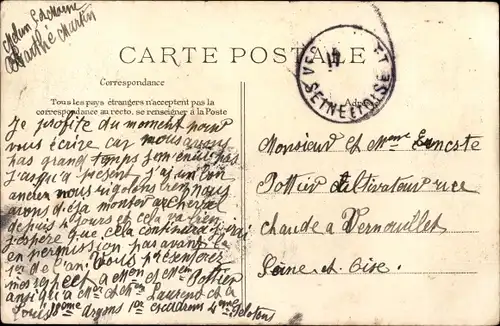 CARTE POSTALE
Correspondance
Tous les pays étrangers n'acceptent pas la
correspondance au recto, se renseigner à la Poste
SEINE ET OISE
Je profite du moment pour
vous écrire car nous avons
pas grand temps
Jusqu'a présent j'ai un bon
ancien nous rigolons bien nous
avons deja monter a cheval
depuis 4 jours et cela va bien
J'espère que cela continuera j'irai
en permission pas avant le
1er de l'an. Vous présenterez
mes respect a Mon et Mem Pottier
ainsi qu'a Mer et Mem Laurent et a
Louis
dragons 1er escadrons 4eme Pelotons
Monsieur et Meme Erneste
Pottier Cultivateur rue
chaude a Vernouillet
Seine et Oise.
Martin